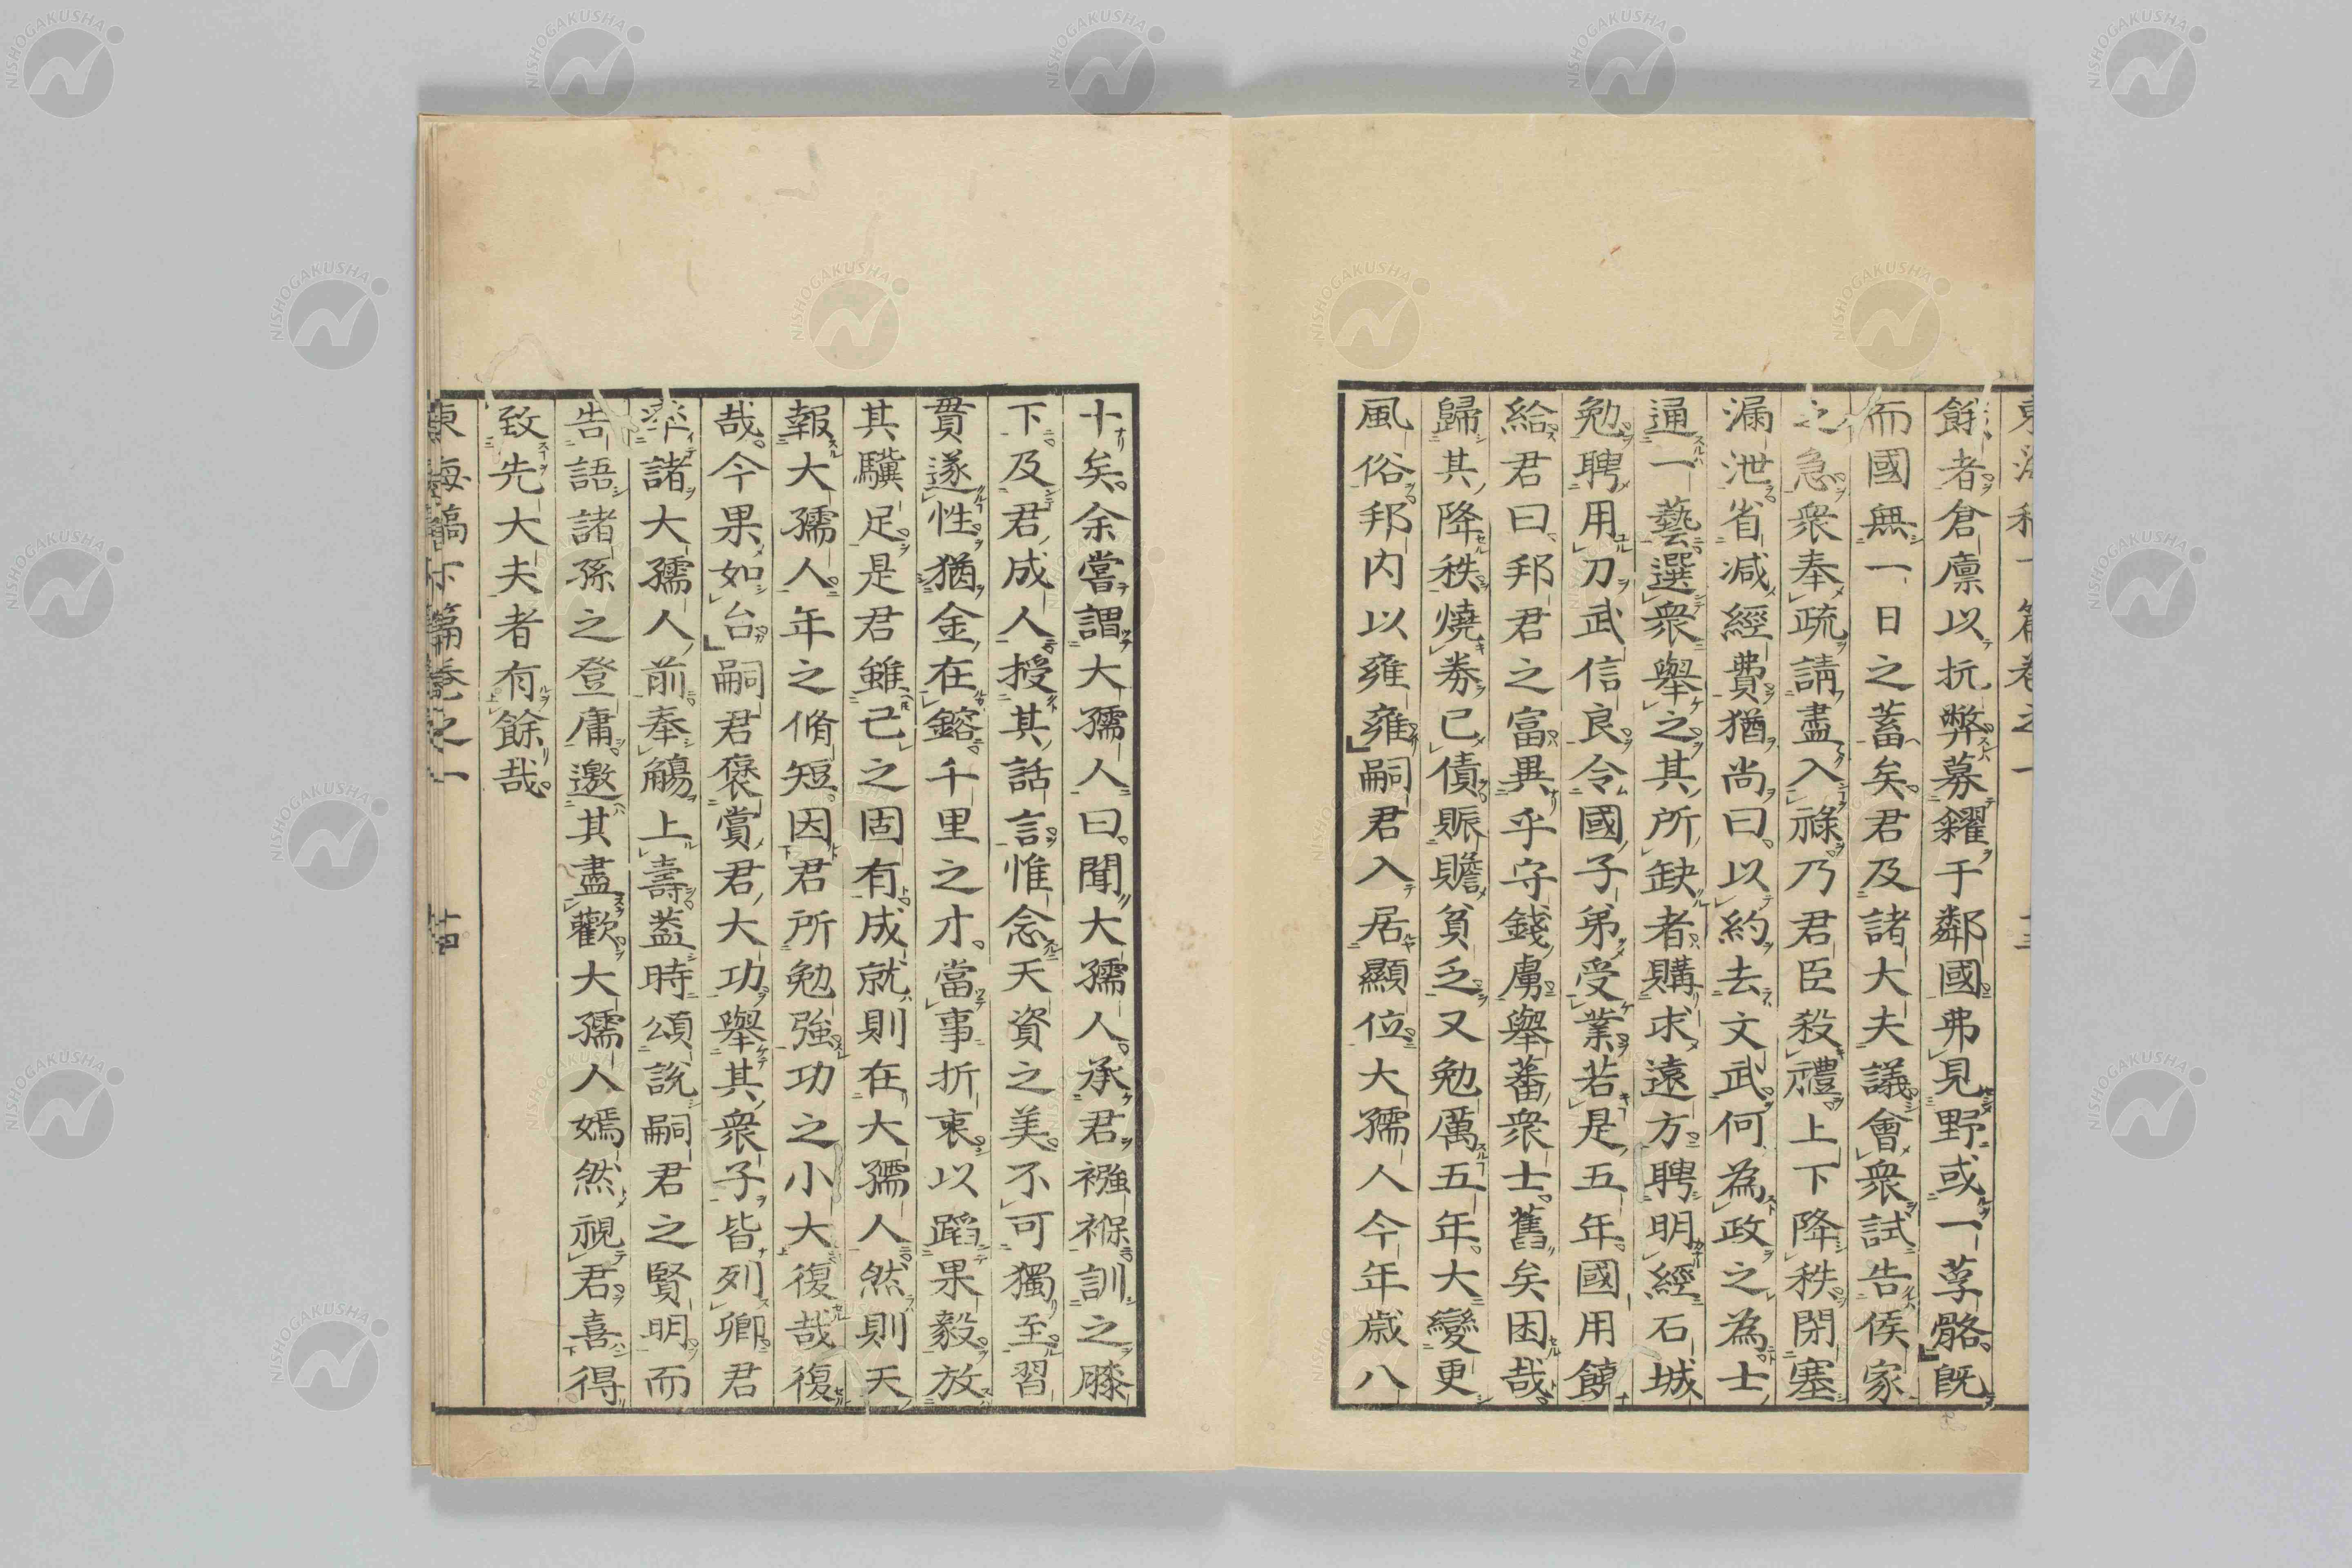 餘者倉廩以抗弊募糴于鄰國弗見野或一莩骼既
而國無一日之蓄矣君及諸大夫議會衆試告侯家
之急衆奉疏請盡入祿乃君臣殺禮上下降秩閉塞
漏泄省減經費猶尚曰以約去文武何為政之為士
通一藝選衆舉之其所缺者購求遠方聘明經石城
勉聘用刀武信良令國子弟受業若是五年國用饒
給君曰邦君之富異乎守錢虜舉蕃衆士舊矣困哉
歸其降秩燒券已債賑贍貧乏又勉厲五年大變更
風俗邦内以雍雍嗣君入居顯位大孺人今年歲八
十矣余嘗謂大孺人曰聞大孺人承君襁褓訓之膝
下及君成人授其話言惟念天資之美不可獨至習
貫遂性猶金在鎔千里之才當事折衷以蹈果毅放
其驥足是君雖己之固有成就則在大孺人然則天
報大孺人年之脩短因君所勉強功之小大復哉復
哉今果如台嗣君褒賞君大功舉其衆子皆列卿君
率諸大孺人前奉觴上壽蓋時頌說嗣君之賢明而
告語諸孫之登庸邀其盡歡大孺人嫣然視君喜得
致先大夫者有餘哉
東海稿 篇卷之一
NISHOGAKUSHA